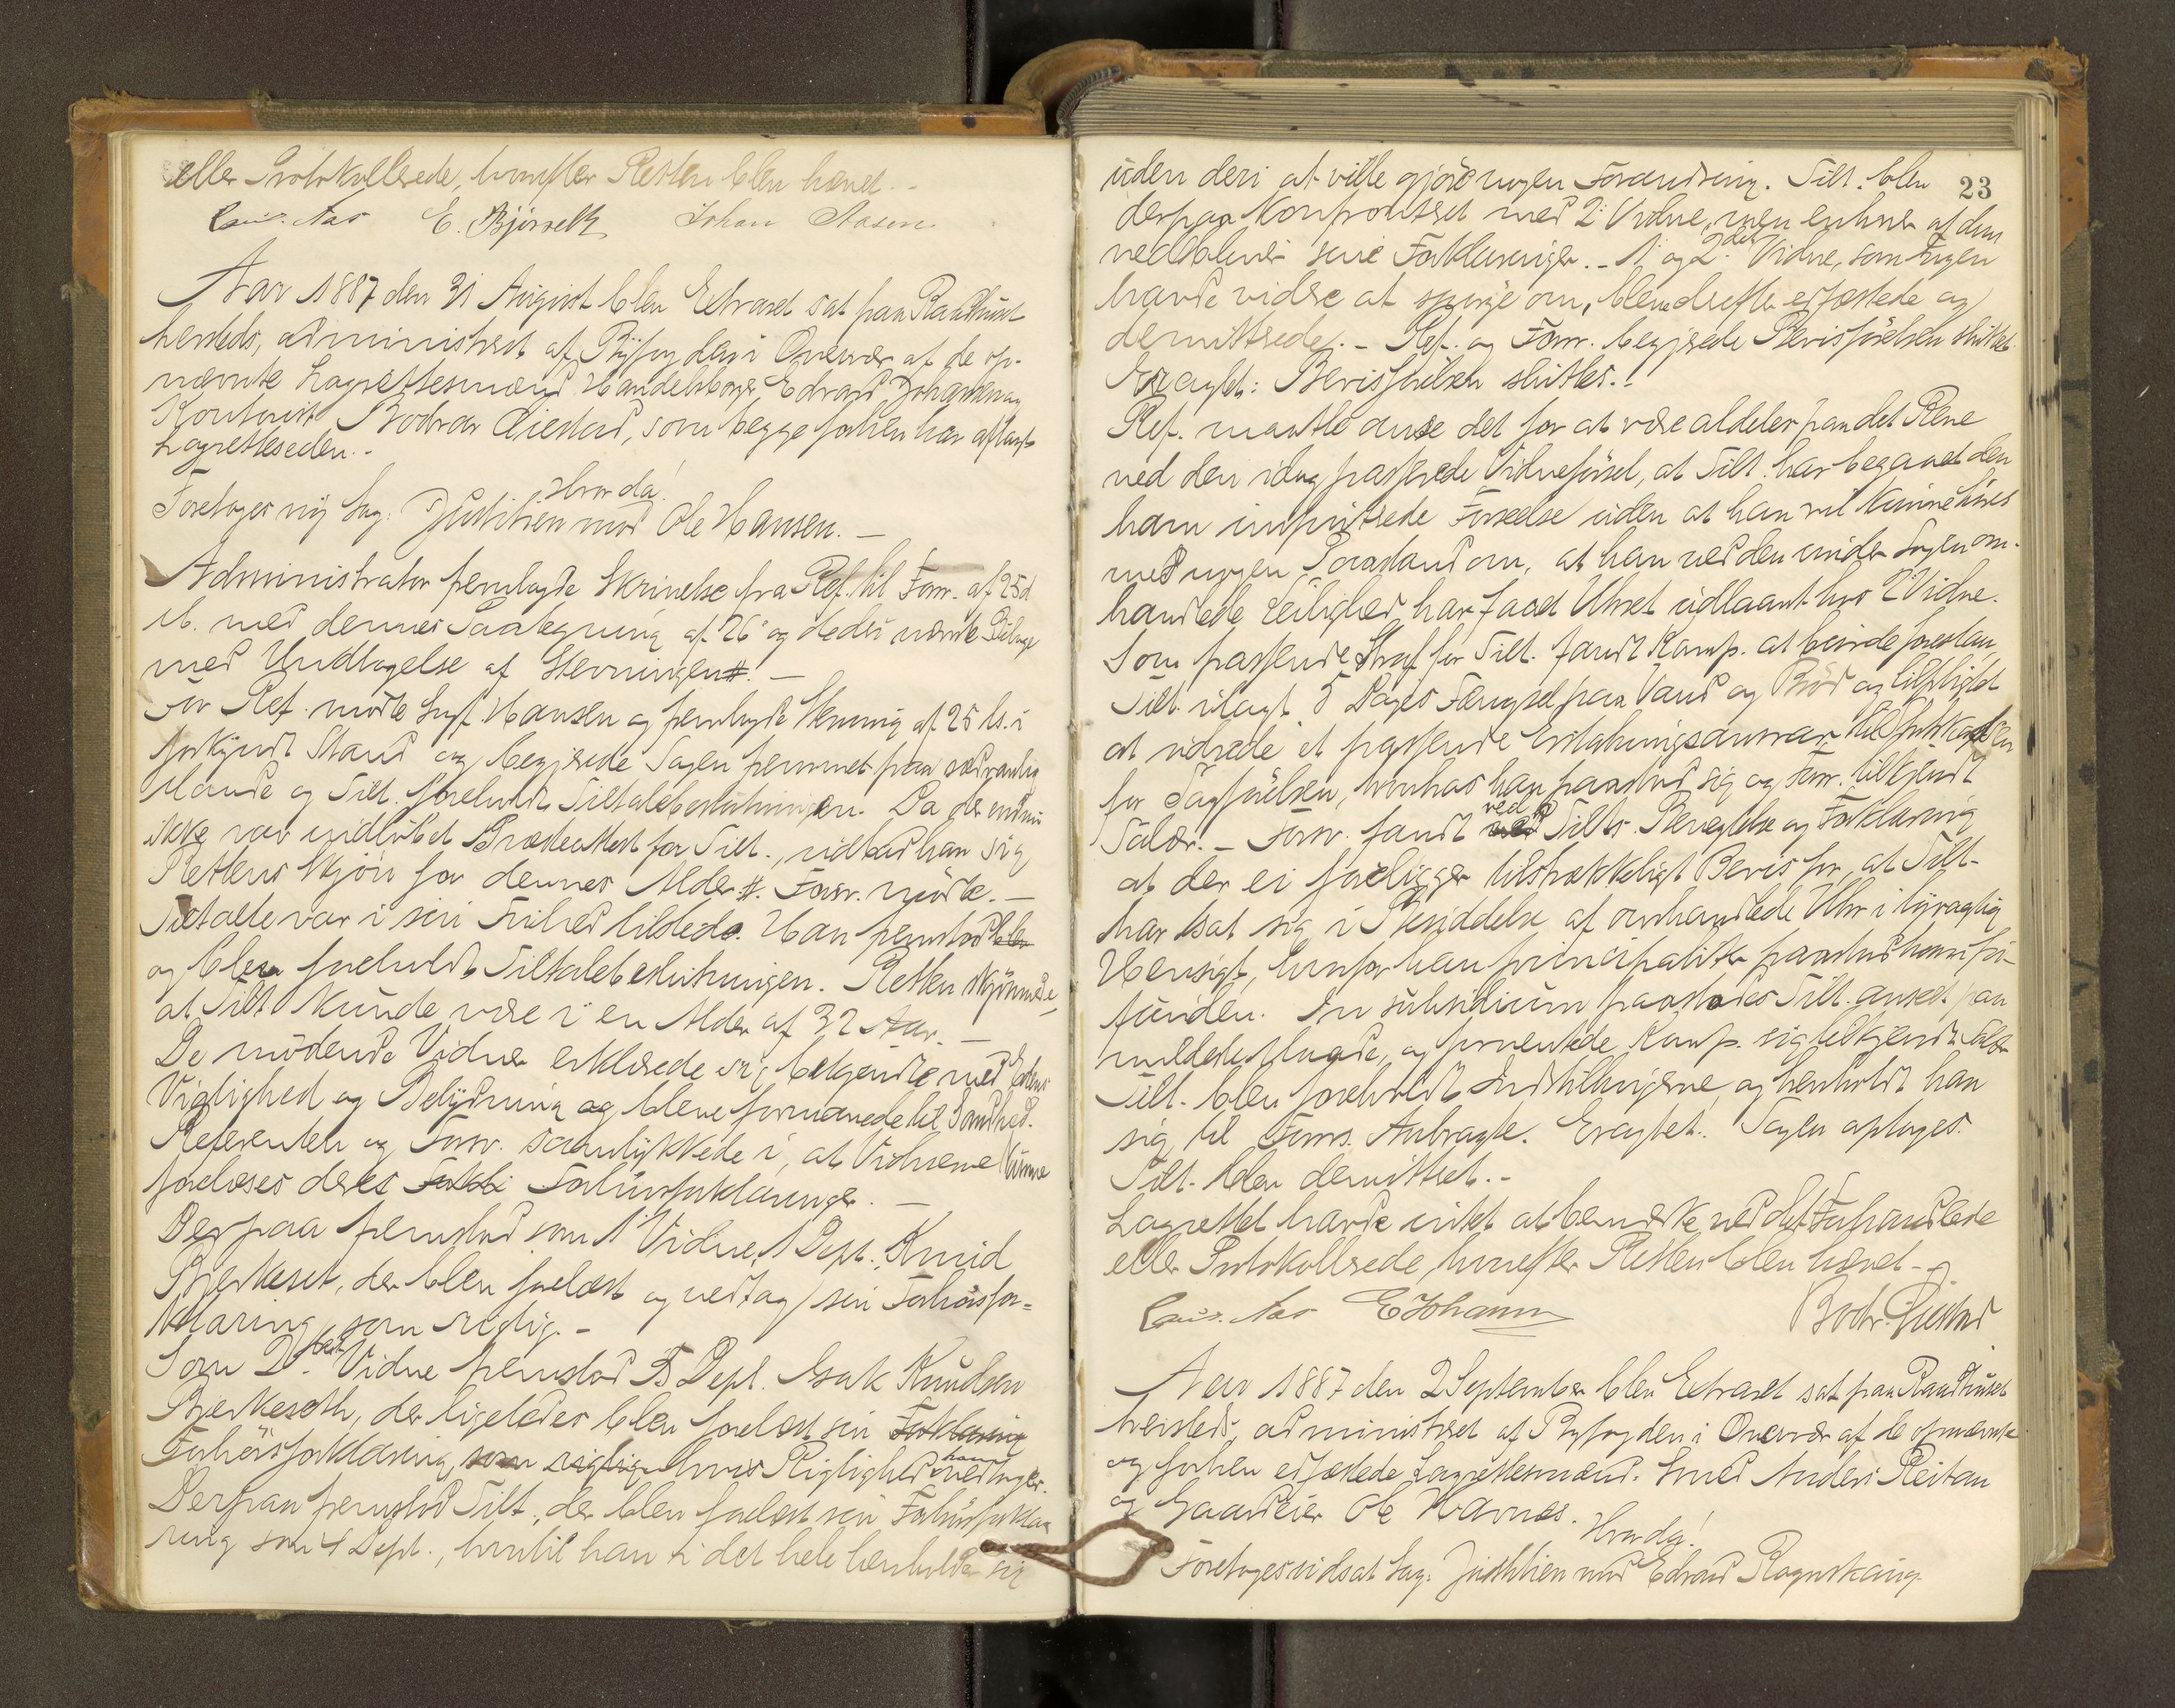 eller Protokollerede, hvorefter Retten blev hævet. -
E. Bjørseth Johan Aasen
Aar 1887 den 31 August blev Extraret sat paa Raadhuset
hersteds, administreret af Byfogden i Overvær af de op-
nævnte Lagrettesmænd Handelsborger Edvard Johansen og
Kontorist Bodvar Giestad, som begge forhen har aflagt
Lagretteseden. -
Hvor da!
Foretoges ny Sag: Justitien mod Ole Hansen. -
Administrator fremlagde Skrivelse fra Ref. til Forsv. af 25 d
M. med dennes Paategning af 26 og de deri nævnte Bilage
med Undtagelse af Stevningen #. -
For Ref. mødte Hansen og fremlagde Stevning af 25 ds. i
forkyndt Stand og begjærede Sagen fremmet paa sædvanlig
Maade og Tilt. foreholdt Tiltalebeslutningen. Da der endnu
ikke var indløbet Præsteattest for Tilt., udbad han sig
Rettens Skjøn for dennes Alder #. Forsv. mødte. -
Tiltalte var i sin Frihed tilstede. Han fremstod blev
og blev foreholdt Tiltalebeslutningen. Retten skjønnede,
at Tilt. kunde være i en Alder af 32 Aar. -
De mødende Vidner erklærede sig bekjendte med Edens
Vigtighed og Betydning og bleve formanede til Sandhed.
Referenten og Forsv. samtykkede i, at Vidnerne kunne
forelæses deres Forkl Forhørsforklaringer. -
Derpaa fremstod som 1 Vidne, 1 Dept. Knud
Bjerkeset, der blev forelæst og vedtog sin Forhørsfor-
klaring som rigtig. -
Som 2det Vidne fremstod 5 Dept. Isak Knudsen
Bjerkeseth, der ligeledes blev forelæst sin Forklaring
Forhørsforklaring, som rigtig hvis Rigtighed han vedtoger.
Derpaa fremstod Tilt., der blev forelæst sin Forhørsforkla
ring som 4 Dept., hvortil han i det hele henholder sig
23
uden deri at ville gjøre nogen Forandring. Tilt. blev
derpaa konfronteret med 2 Vidne, men enhver af dem
vedblever sine Forklaringer. - 1 og 2det Vidne, som Ingen
havde videre at spørge om, bleve derefter edfæstede og
demitterede. - Ref. og Forsv. begjærede Bevisførelsen sluttet.
Eragtet: Bevisførelsen sluttes. -
Ref. maatte anse det for at være aldeles paa det Rene
ved den idag passerede Vidneførsel, at Tilt. har begaaet den
ham imputerede Forseelse uden at han vil kunne høres
med nogen Paastand om, at han ved den under Sagen om-
handlede Leilighed har faaet Uhret udlaant hos 2 Vidne.
Som passende Straf for Tilt. fandt Komp. at burde foreslaa
Tilt. ilagt 5 Dages Fængsel paa Vand og Brød og tilpligtet
at udrede et passende Erstatningsansvar til
for Sagførelsen, hvorhos han paastod sig og Forsv. tilkjendt
Salær. - Forsv. fandt med ved Tilts. Benegtelse og Forklaring
at der ei foreligger tilstrækkeligt Bevis for, at Tilt.
har sat sig i Besiddelse af omhandlede Uhr i tyvagtig
Hensigt, hvorfor han principaliter paastod ham fri-
funden. In subsidium paastodes Tilt. anseet paa
mildeste Maade, og forventede Komp. sig tilkjendt Salær
Tilt. blev foreholdt Indstillingerne, og henholdt han
sig til Forsvs. Anbragte. Eragtet: Sagen optages.
Tilt. blev demitteret. -
Lagrettet havde intet at bemærke ved det Forhandlede
eller Protokollerede, hvorefter Retten blev hævet. -
E Johansen Bodv. Giestad
Aar 1887 den 2 September blev Extraret sat paa Raadhuset
hersteds, administreret af Byfogden i Overvær af de opnævnte
og forhen edfæstede Lagrettesmænd. Smed Anders Reitan
og Gaardeier Ole Havnes.
Hvor da!
Foretoges udsat Sag: Justitien mod Edvard